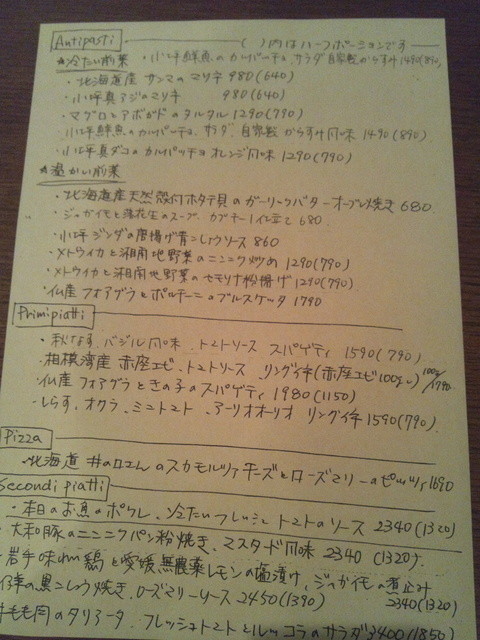 Antipasti ( )内はハーフポーションです
★冷たい前菜 ・小坪鮮魚のカルパッチョ サラダ 自家製からすみ 1490(890)
・北海道産サンマのマリネ 980(640)
・小坪真アジのマリネ 980(640)
・マグロとアボガドのタルタル 1290(790)
・小坪鮮魚のカルパッチョ、サラダ、自家製からすみ風味 1490(890)
・小坪真ダコのカルパッチョ オレンジ風味 1290(790)
★温かい前菜
・北海道産天然殻付ホタテ貝のガーリックバターオーブン焼き 680
・ジャガイモと落花生のスープ、カプチーノ仕立て 680
・小坪ジンダの唐揚げ青こしょうソース 860
・メトウイカと湘南地野菜のニンニク炒め 1290(790)
・メトウイカと湘南地野菜のセモリナ粉揚げ 1290(790)
・仏産フォアグラとポルチーニのブルスケッタ 1790
Primipiatti
・秋なす、バジル風味、トマトソース スパゲティ 1590(790)
・相模湾産 赤座エビ、トマトソース リングイネ(赤座エビ100g〜) 100g/1790
・仏産フォアグラときの子のスパゲティ 1980(1150)
・しらす、オクラ、ミニトマト、アーリオオーリオ リングイネ 1590(790)
Pizza
・北海道 井ノ口さんのスカモルツァチーズとローズマリーのピッツァ 1690
Secondi piatti
・本日のお魚のポワレ、冷たいフレッシュトマトのソース 2340(1320)
・大和豚のニンニクパン粉焼き、マスタード風味 2340 (1320)
・岩手味わい鶏と愛媛無農薬レモンの塩漬け、ジャガイモの煮込み 2340(1320)
仔羊の黒こしょう焼き、ローズマリーソース 2450(1390)
牛モモ肉のタリアータ、フレッシュトマトとルッコラのサラダ 2400(1850)